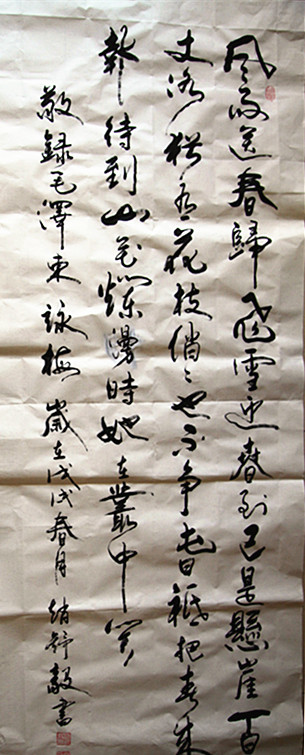 風雨送春歸飛雪迎春到已是懸崖百
丈冰猶有花枝俏々也不争春祇把春来
報待到山花爛漫時她在叢中笑
敬録毛澤東詠梅歲在戊戌春月書